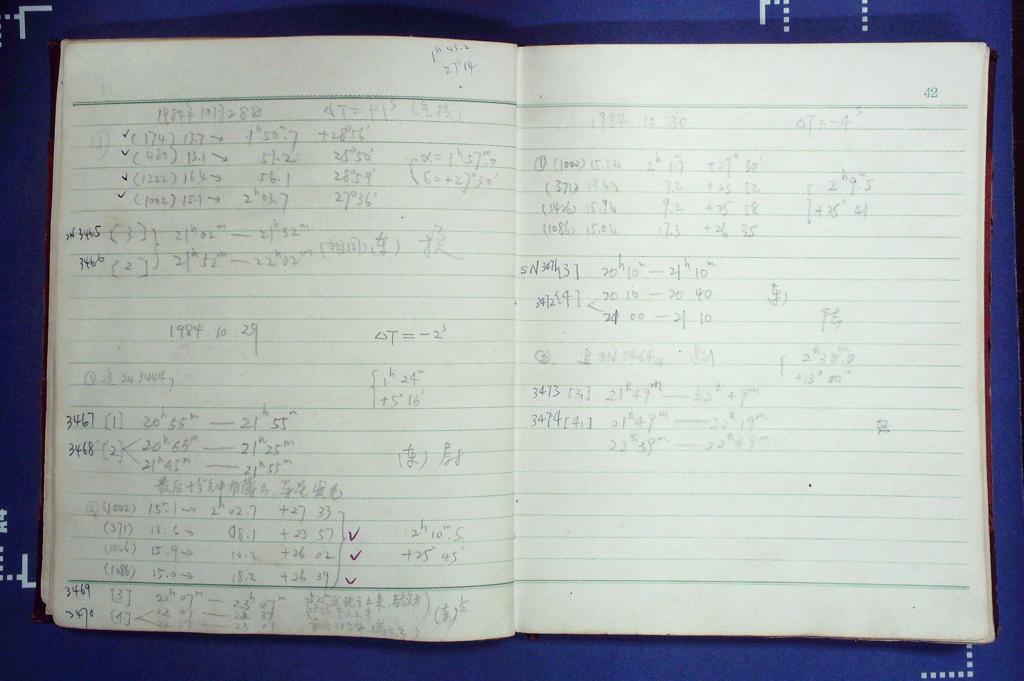 1ʰ 45.2
27° 14
1984年10月28日 ΔT=+1ˢ
① ✓(174) 13.7→ 1ʰ50ᵐ.7 +28°56′
✓(480) 13.1→ 51.2 25°50′ { α=1ʰ57ᵐ.0
✓(1222) 16.4→ 56.1 28°59′ δ=+27°30′
✓(1002) 15.1→ 2ʰ03.7 27°36′
SN3465 [3] 21ʰ02ᵐ — 21ʰ32ᵐ (相同) (东)
3466 [2] 21ʰ52ᵐ — 22ʰ02ᵐ
1984.10.29 ΔT=-2ˢ
① 追SN3444₇ { 1ʰ24ᵐ
+5°16′
3467 [1] 20ʰ55ᵐ — 21ʰ55ᵐ
3468 [2] 20ʰ55ᵐ — 21ʰ25ᵐ (东)
21ʰ45ᵐ — 21ʰ55ᵐ
最后十分钟有薄云,
② (1002) 15.1→ 2ʰ02.7 +27 33
(371) 13.6→ 08.1 +23 57 ✓ 2ʰ10ᵐ.5
(1426) 15.9→ 10.2 +26 02 ✓ +25°45′
(1086) 15.0→ 18.2 +26 39 ✓
3469 [3] 22ʰ07ᵐ — 23ʰ07ᵐ
3470 [4] 22 07 — 22 37 (东)
22 57 — 23 07
42
1984.10.30 ΔT=-4ˢ
① (1002) 15.1→ 2ʰ1ᵐ.7 +27°30′
(371) 13.6→ 7.2 +23 52 { 2ʰ9ᵐ.5
(1426) 15.9→ 9.2 +25 58 +25° 41
(1086) 15.0→ 17.3 +26 35
SN3471 [3] 20ʰ10ᵐ — 21ʰ10ᵐ
3472 [4] 20 10 — 20 40 (东)
21 00 — 21 10
② 追SN3464₄ { 2ʰ38ᵐ.0
+13°00′
3473 [3] 21ʰ49ᵐ — 22ʰ49ᵐ
3474 [4] 21ʰ49ᵐ — 22ʰ19ᵐ
22ʰ39ᵐ — 22ʰ49ᵐ